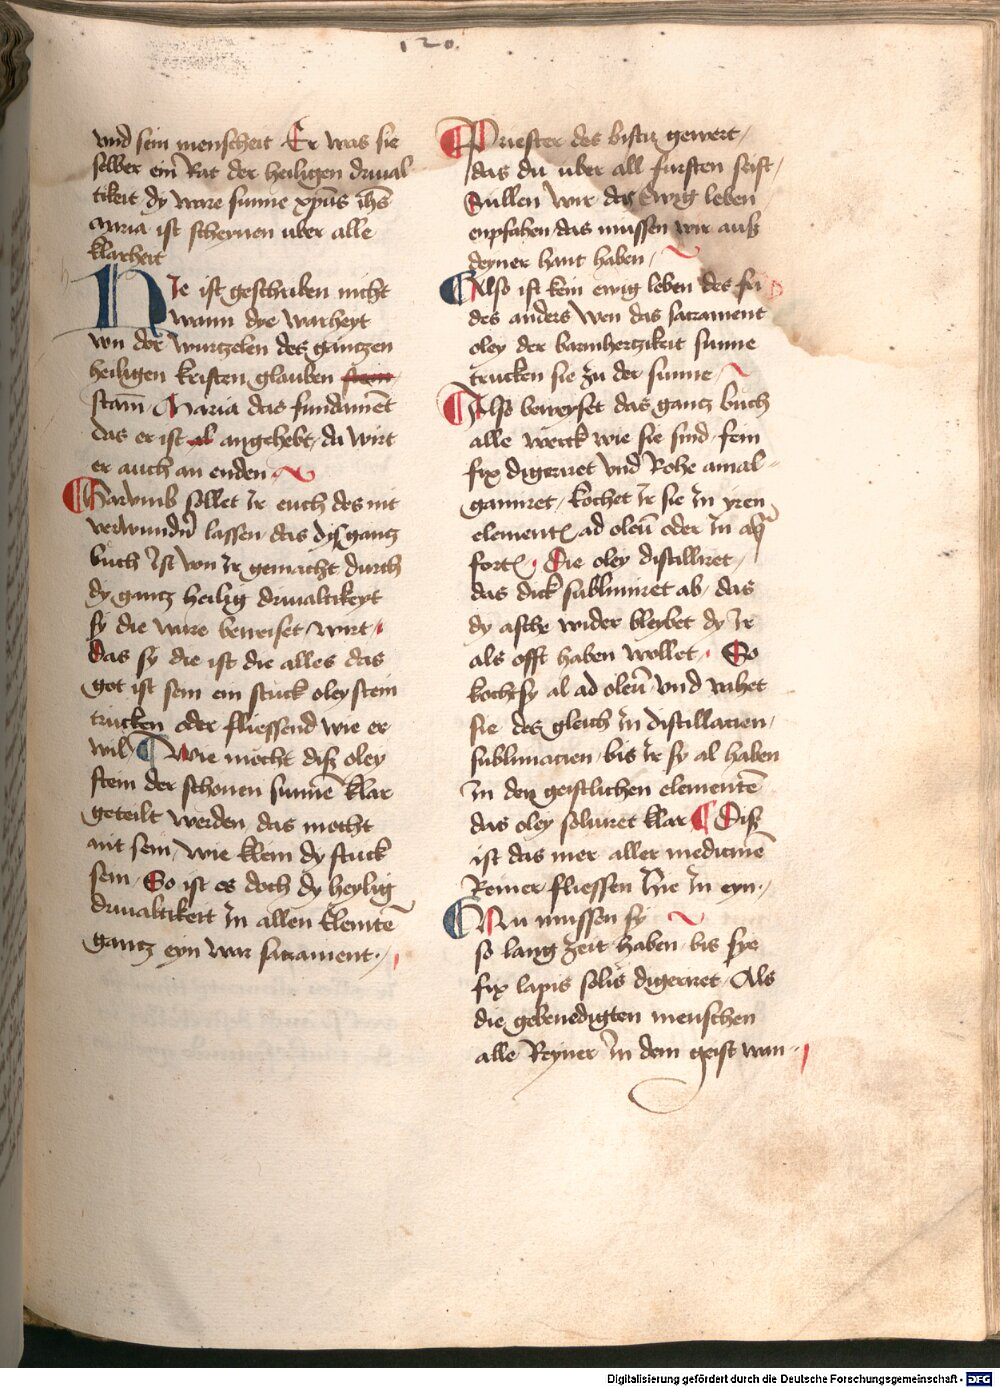 120.
vnd sein menscheit Er was sie
selber ein Rat der heiligen driual
tikeit dy ware sunne xpūs ihs
maria ist scheynen uber alle
klarheit
HIe ist geschriben nicht
wann dye warheyt
von der wurtzelen des gantzen
heiligen kristen glauben
stam̄ Maria das fundamēt
das er ist angehebt, da wirt
er auch an enden
Darvmb sollet Ir euch des nit
verwundn̄ lassen, das diß gantz
buch Ist von Ir gemacht durch
dy gantz heilig driualtikeyt
sy die ware beweiset wirt
Das sy die ist die alles das
got ist sein ein stuck oley stein
trucken oder fliessend wie er
wil Wie mocht diß oley
stein der schonen sunnē klar
geteilt werden, das mocht
nit sein, wie klein dy stuck
sein, So ist es doch dy heylig
driualtikeit In allen klentē
gantz eyn war sacrament
Priester des bistu gewert,
das du uber all fursten seist,
Sullen wir das ewig leben
enpfahen das mussen wir auß
deyner hant haben,
Also ist kein ewig leben des
des anders wen das sacrament
oley der barmhertzikeit sunne
trucken sie zu der sunne
Also beweyset das gantz buch
alle werck wie sie sind, fein
fix digeriret vnd Rohe amal-
gamiret, kochet Ir sie In yren
element ad oleū oder In aq̄
fort, Die oley distilliret,
das dick sublimiret ab, das
dy asche wider bleybet dy Ir
als offt haben wollet, So
kocht sy al ad oleū vnd
sie des gleich In distillacien,
sublimacien, bis Ir sy al haben
In den geistlichen elementē
das oley soluiret klar Diß
ist das mer aller medicinē
Reiner fliessen hie In eyn,
Nu mussen sy
so lang zeit haben bis sye
fix lapis solis digeriret, Als
die gebenedigten menschen
alle Reyner In dem geist
Digitalisierung gefördert durch die Deutsche Forschungsgemeinschaft - DFG